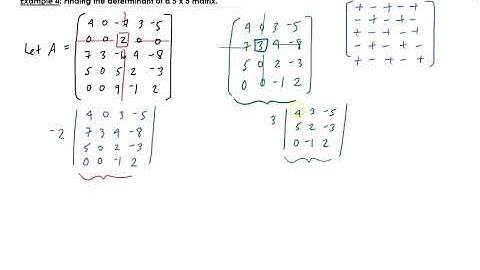 Example 4: Finding the determinant of a 5 x 5 matrix.
Let A =
4 0 -7 3 -5
0 0 2 0 0
7 3 -6 4 -8
5 0 5 2 -3
0 0 9 -1 2
4 0 3 -5
7 3 4 -8
5 0 2 -3
0 0 -1 2
+ - + - +
- + - + -
+ - + - +
- + - + -
+ - + - +
-2
4 0 3 -5
7 3 4 -8
5 0 2 -3
0 0 -1 2
3
4 3 -5
5 2 -3
0 -1 2